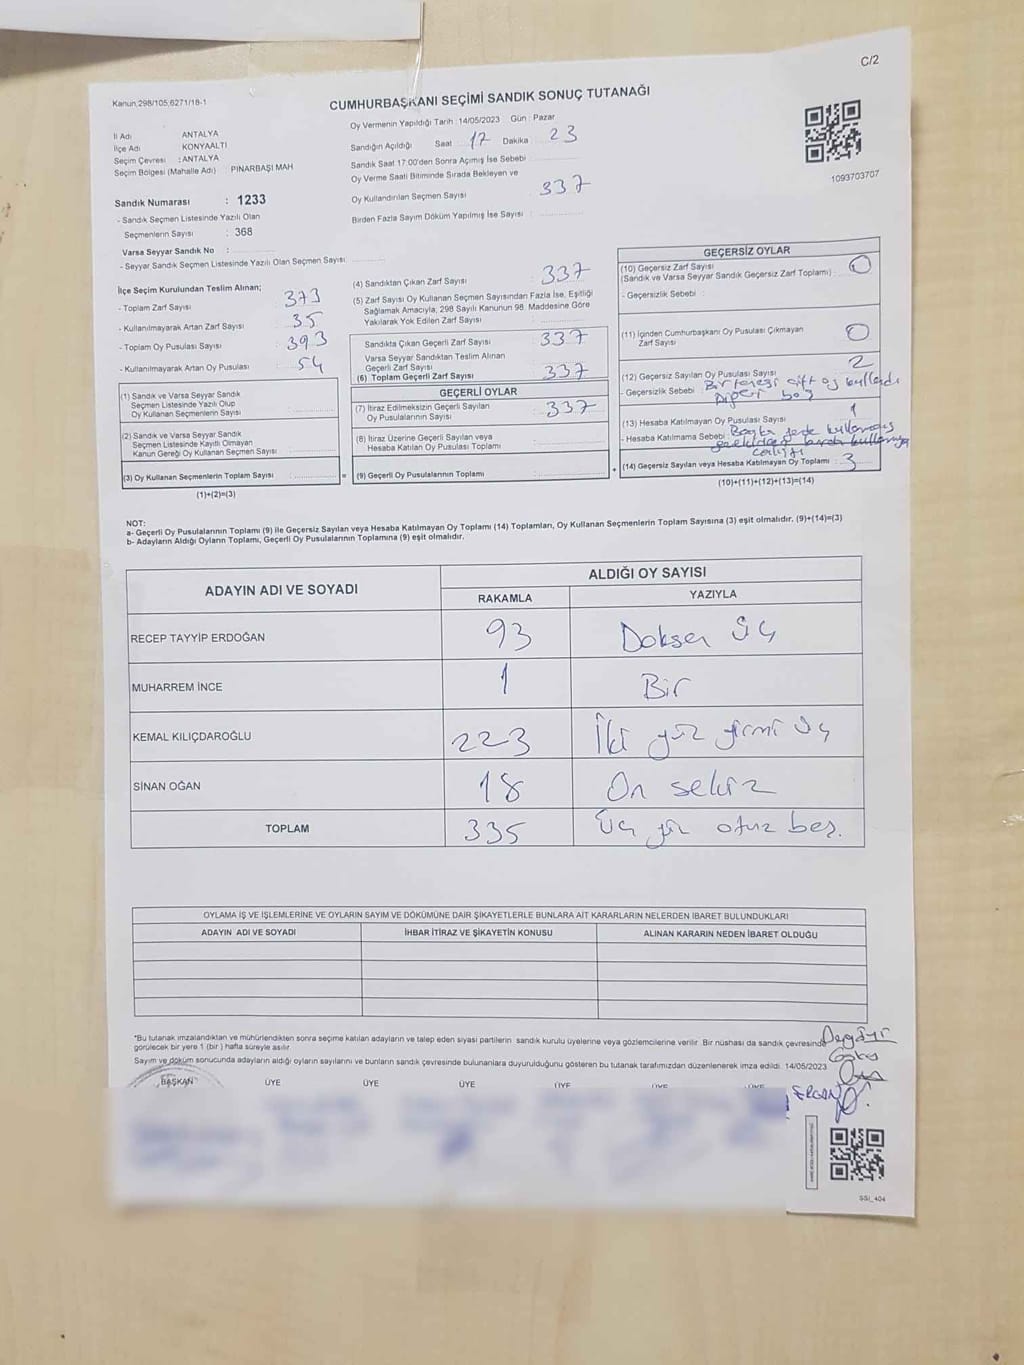 C/2
Kanun,298/105,6271/18-1
CUMHURBAŞKANI SEÇİMİ SANDIK SONUÇ TUTANAĞI
İl Adı ANTALYA
İlçe Adı KONYAALTI
Seçim Çevresi : ANTALYA
Seçim Bölgesi (Mahalle Adı) PINARBAŞI MAH
Sandık Numarası : 1233
- Sandık Seçmen Listesinde Yazılı Olan
Seçmenlerin Sayısı : 368
Varsa Seyyar Sandık No :
- Seyyar Sandık Seçmen Listesinde Yazılı Olan Seçmen Sayısı:
Oy Vermenin Yapıldığı Tarih : 14/05/2023 Gün : Pazar
Sandığın Açıldığı Saat 17 Dakika 23
Sandık Saat 17:00'den Sonra Açımış İse Sebebi
Oy Verme Saati Bitiminde Sırada Bekleyen ve
Oy Kullandırılan Seçmen Sayısı 337
Birden Fazla Sayım Döküm Yapılmış İse Sayısı :
1093703707
İlçe Seçim Kurulundan Teslim Alınan;
- Toplam Zarf Sayısı 373
- Kullanılmayarak Artan Zarf Sayısı 35
- Toplam Oy Pusulası Sayısı 393
- Kullanılmayarak Artan Oy Pusulası 54
(1) Sandık ve Varsa Seyyar Sandık
Seçmen Listesinde Yazılı Olup
Oy Kullanan Seçmenlerin Sayısı
(2) Sandık ve Varsa Seyyar Sandık
Seçmen Listesinde Kayıtlı Olmayan
Kanun Gereği Oy Kullanan Seçmen Sayısı
(3) Oy Kullanan Seçmenlerin Toplam Sayısı =
(1)+(2)=(3)
(4) Sandıktan Çıkan Zarf Sayısı 337
(5) Zarf Sayısı Oy Kullanan Seçmen Sayısından Fazla İse, Eşitliği
Sağlamak Amacıyla; 298 Sayılı Kanunun 98. Maddesine Göre
Yakılarak Yok Edilen Zarf Sayısı
Sandıkta Çıkan Geçerli Zarf Sayısı 337
Varsa Seyyar Sandıktan Teslim Alınan
Geçerli Zarf Sayısı
(6) Toplam Geçerli Zarf Sayısı 337
GEÇERLİ OYLAR
(7) İtiraz Edilmeksizin Geçerli Sayılan
Oy Pusulalarının Sayısı 337
(8) İtiraz Üzerine Geçerli Sayılan veya
Hesaba Katılan Oy Pusulası Toplamı
(9) Geçerli Oy Pusulalarının Toplamı +
GEÇERSİZ OYLAR
(10) Geçersiz Zarf Sayısı
(Sandık ve Varsa Seyyar Sandık Geçersiz Zarf Toplamı) 0
- Geçersizlik Sebebi :
(11) İçinden Cumhurbaşkanı Oy Pusulası Çıkmayan
Zarf Sayısı 0
(12) Geçersiz Sayılan Oy Pusulası Sayısı 2
- Geçersizlik Sebebi Bir tanesi çift oy kullandı
Diğeri boş
(13) Hesaba Katılmayan Oy Pusulası Sayısı 1
- Hesaba Katılmama Sebebi Başka yerde kullanmış
(14) Geçersiz Sayılan veya Hesaba Katılmayan Oy Toplamı : 3
(10)+(11)+(12)+(13)=(14)
NOT:
a- Geçerli Oy Pusulalarının Toplamı (9) ile Geçersiz Sayılan veya Hesaba Katılmayan Oy Toplamı (14) Toplamları, Oy Kullanan Seçmenlerin Toplam Sayısına (3) eşit olmalıdır. (9)+(14)=(3)
b- Adayların Aldığı Oyların Toplamı, Geçerli Oy Pusulalarının Toplamına (9) eşit olmalıdır.
ADAYIN ADI VE SOYADI ALDIĞI OY SAYISI
RAKAMLA YAZIYLA
RECEP TAYYİP ERDOĞAN 93 Doksan üç
MUHARREM İNCE 1 Bir
KEMAL KILIÇDAROĞLU 223 İki yüz yirmi üç
SİNAN OĞAN 18 On sekiz
TOPLAM 335 Üç yüz otuz beş.
OYLAMA İŞ VE İŞLEMLERİNE VE OYLARIN SAYIM VE DÖKÜMÜNE DAİR ŞİKAYETLERLE BUNLARA AİT KARARLARIN NELERDEN İBARET BULUNDUKLARI
ADAYIN ADI VE SOYADI İHBAR İTİRAZ VE ŞİKAYETİN KONUSU ALINAN KARARIN NEDEN İBARET OLDUĞU
*Bu tutanak imzalandıktan ve mühürlendikten sonra seçime katılan adayların ve talep eden siyasi partilerin sandık kurulu üyelerine veya gözlemcilerine verilir. Bir nüshası da sandık çevresinde
görülecek bir yere 1 (bir) hafta süreyle asılır.
Sayım ve döküm sonucunda adayların aldığı oyların sayılarını ve bunların sandık çevresinde bulunanlara duyurulduğunu gösteren bu tutanak tarafımızdan düzenlenerek imza edildi. 14/05/2023
BAŞKAN ÜYE ÜYE ÜYE ÜYE ÜYE ÜYE
SSİ_404